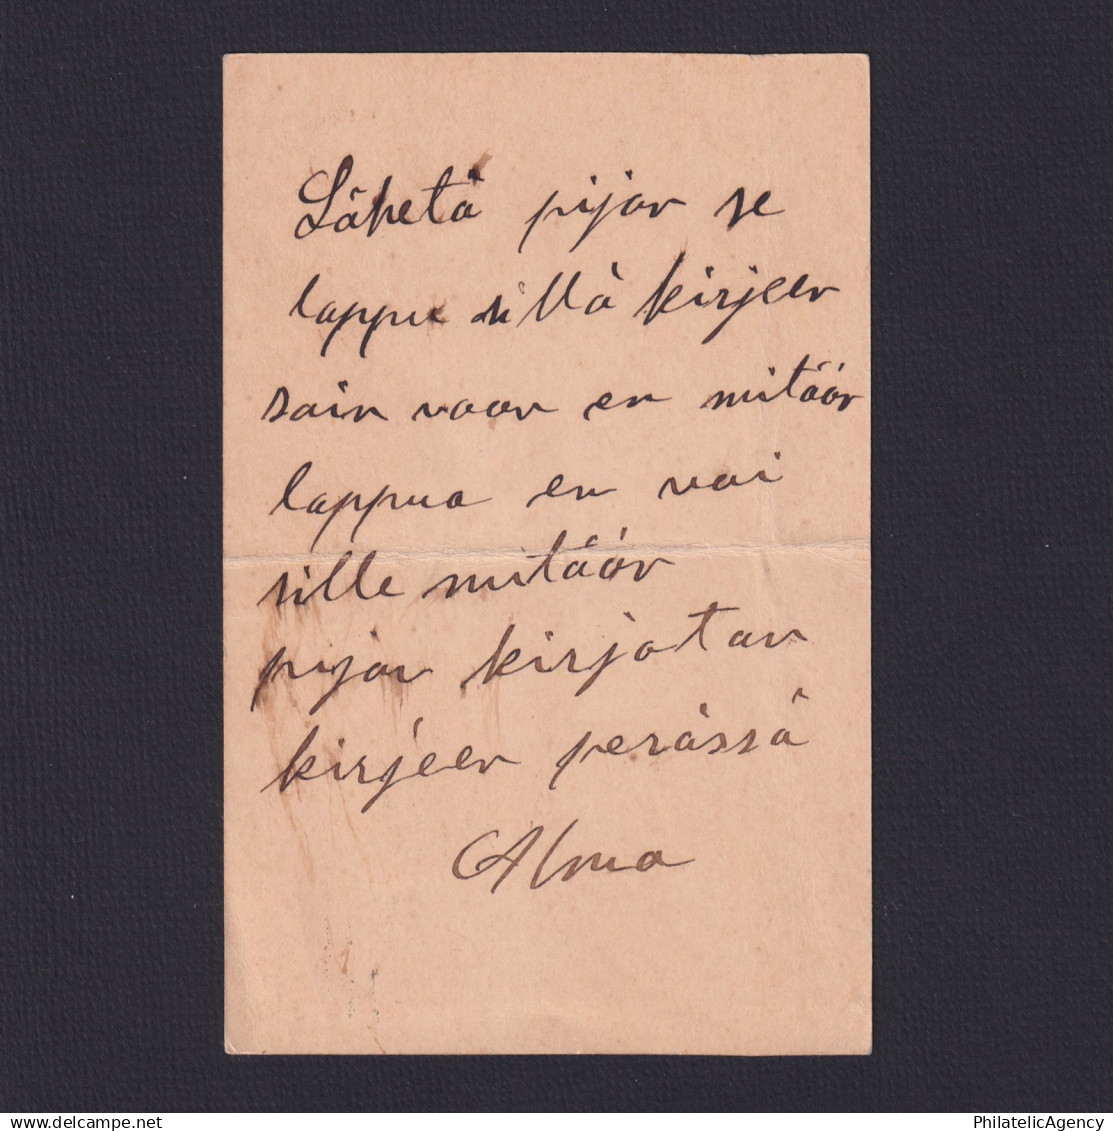 Lähetä pijan se
lappu sillä kirjeen
sain vaan en mitään
lappua en vai
sille mitään
pijan kirjotan
kirjeen perässä
Alma
PhilatelicAgency